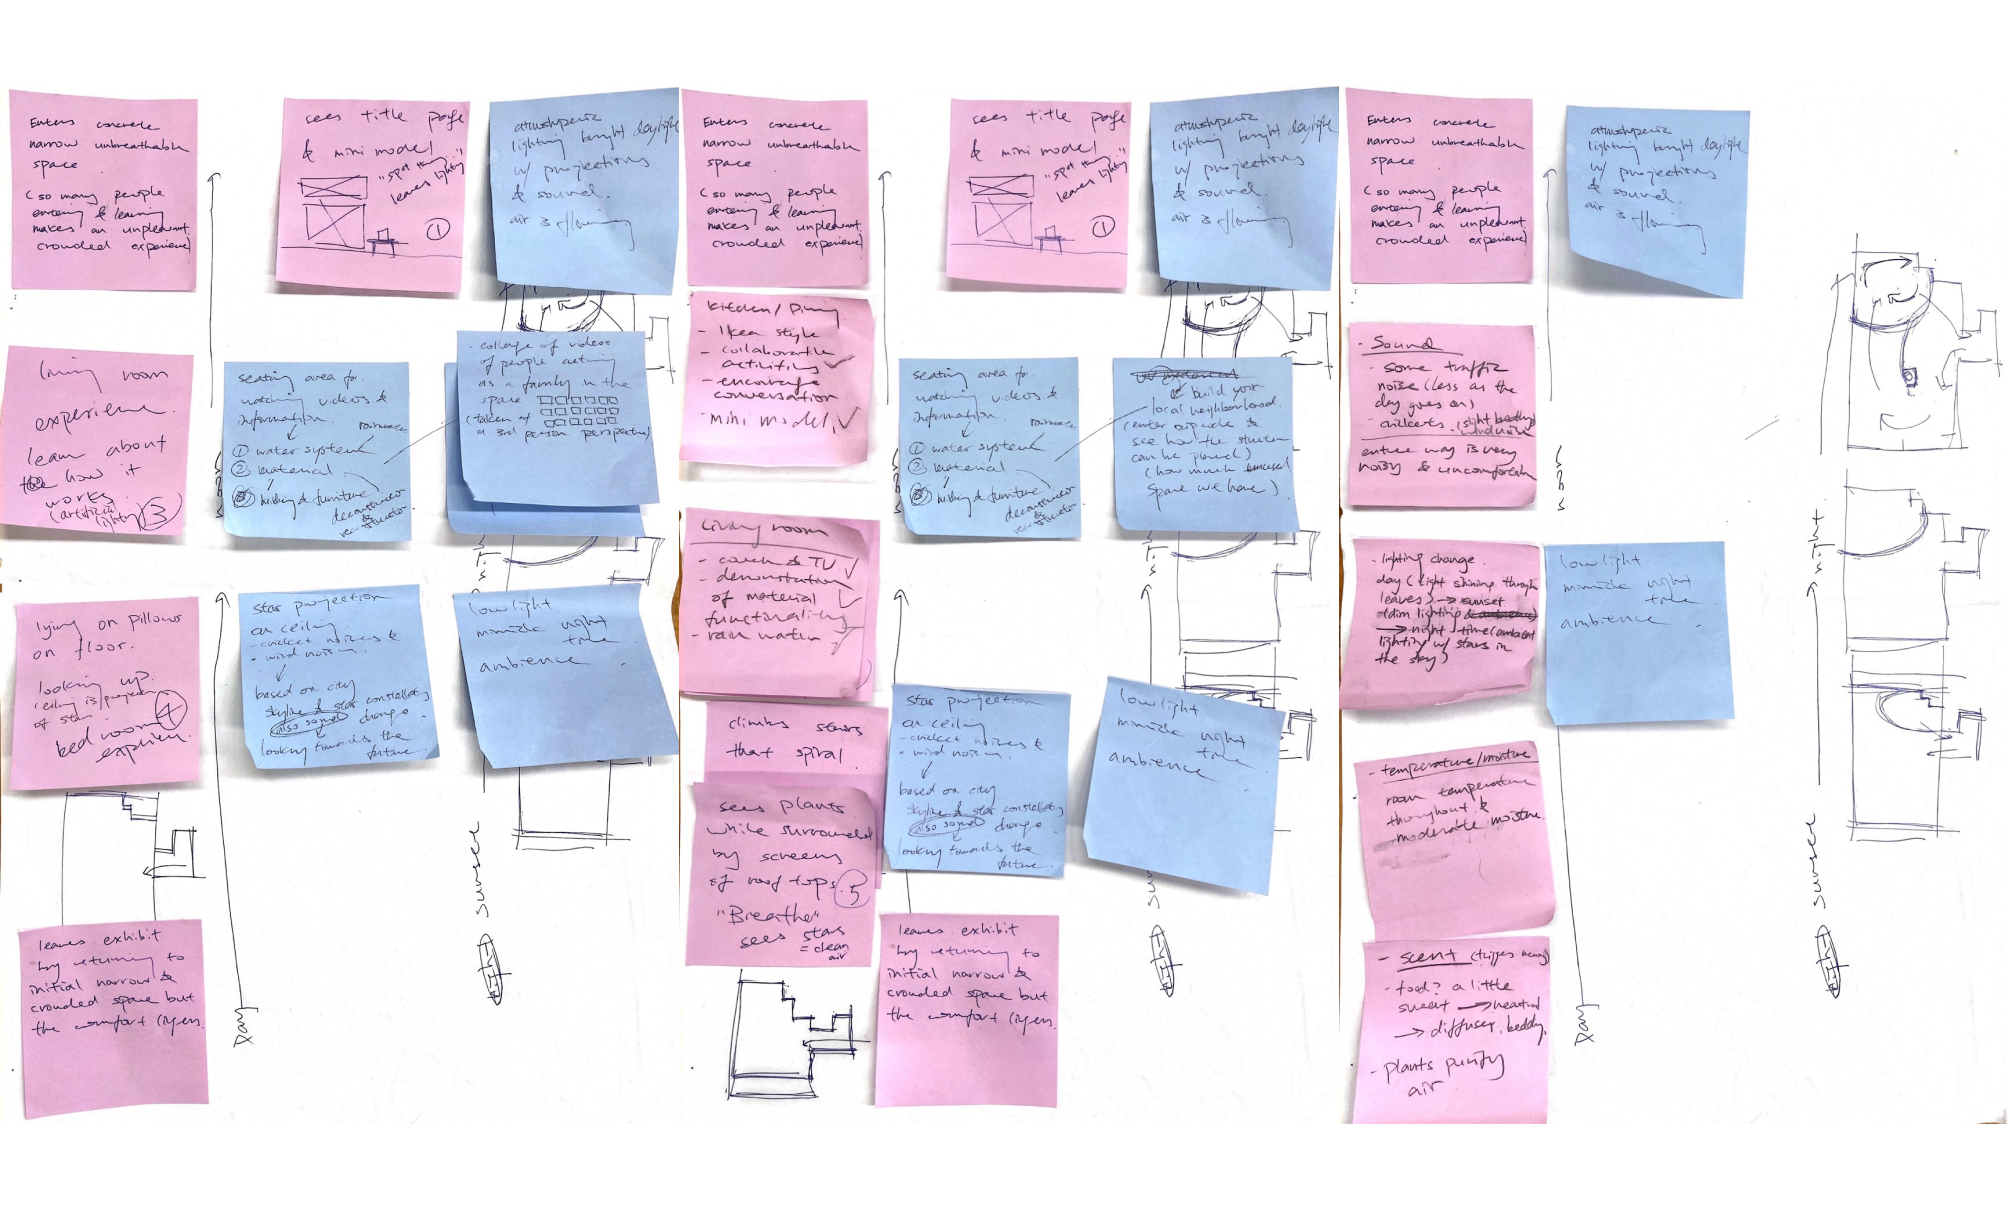 Enters concrete
narrow unbreathable
space
(so many people
entering & leaving
makes an unpleasant
crowded experience)
sees title page
& mini model
leaves lighting"
①
atmosphere
lighting bright daylight
w/ projections
& sound.
air is flowing
living room
experience.
learn about
how it
works
(artificial
lighting) ③
seating area for
watching videos &
information.
① water system
② material
③ building & furniture
- collage of videos
of people acting
as a family in the
space
(taken of
a 3rd person perspective)
noon
lying on pillows
on floor.
looking up.
ceiling is projection
of star.
④
bedroom
experience.
star projection
on ceiling
- cricket noises &
- wind noises.
based on city
skyline & star constellations
also sound change.
looking towards the
future.
low light
mimick night
time
ambience
leaves exhibit
by returning to
initial narrow &
crowded space but
the comfort lingers.
Day
sunset
night
Enters concrete
narrow unbreathable
space
(so many people
entering & leaving
makes an unpleasant
crowded experience)
sees title page
& mini model
leaves lighting"
①
atmosphere
lighting bright daylight
w/ projections
& sound.
air is flowing
kitchen/Dining
- Ikea style
- collaborative
activities
- encourage
conversation
- mini model
seating area for
watching videos &
information.
① water system
② material
③ building & furniture
build your
local neighbourhood.
(enter zipcode &
see how the structure
can be placed)
(how much unused
space we have)
noon
Living room
- couch & TV
- demonstration
of material
functionality
- rain water
climbs stairs
that spiral
sees plants
while surrounded
by screens
of roof tops. ⑤
"Breathe"
sees stars
= clean
air
star projection
on ceiling
- cricket noises &
- wind noises.
based on city
skyline & star constellations
also sound change.
looking towards the
future.
low light
mimick night
time
ambience
leaves exhibit
by returning to
initial narrow &
crowded space but
the comfort lingers.
Enters concrete
narrow unbreathable
space
(so many people
entering & leaving
makes an unpleasant
crowded experience)
atmosphere
lighting bright daylight
w/ projections
& sound.
air is flowing
- Sound
- some traffic
noise (less as the
day goes on)
- crickets.
entire way is very
noisy & uncomfortable
noon
- lighting change.
day (light shining through
leaves) → sunset
(dim lighting
→ night time (ambient
lighting w/ stars in
the sky)
low light
mimick night
time
ambience
- temperature/moisture
room temperature
throughout &
moderate moisture.
- scent (triggers memory)
- food? a little
sweet → neutral
→ diffuser, bedding.
- plants purify
air
Day
sunset
night